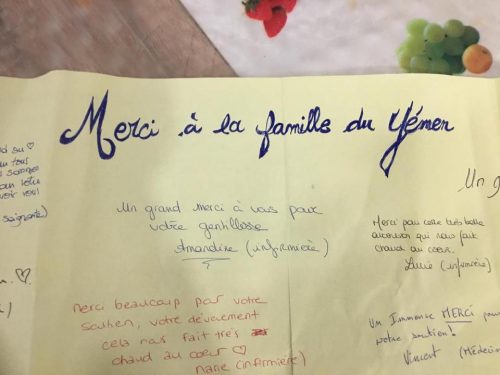 Merci à la famille du Yémen
su ♡
tous
soignante)
Un grand merci à vous pour
votre gentillesse
Amandine (infirmière)
Un g
Merci pour cette très belle
attention qui nous fait
chaud au coeur.
Lucie (infirmière)
♡.
merci beaucoup par votre
soutien, votre dévouement
cela nous fait très
chaud au coeur ♡
Marie (infirmière)
Un Immense MERCI pour
votre soutien!
Vincent (Médecin